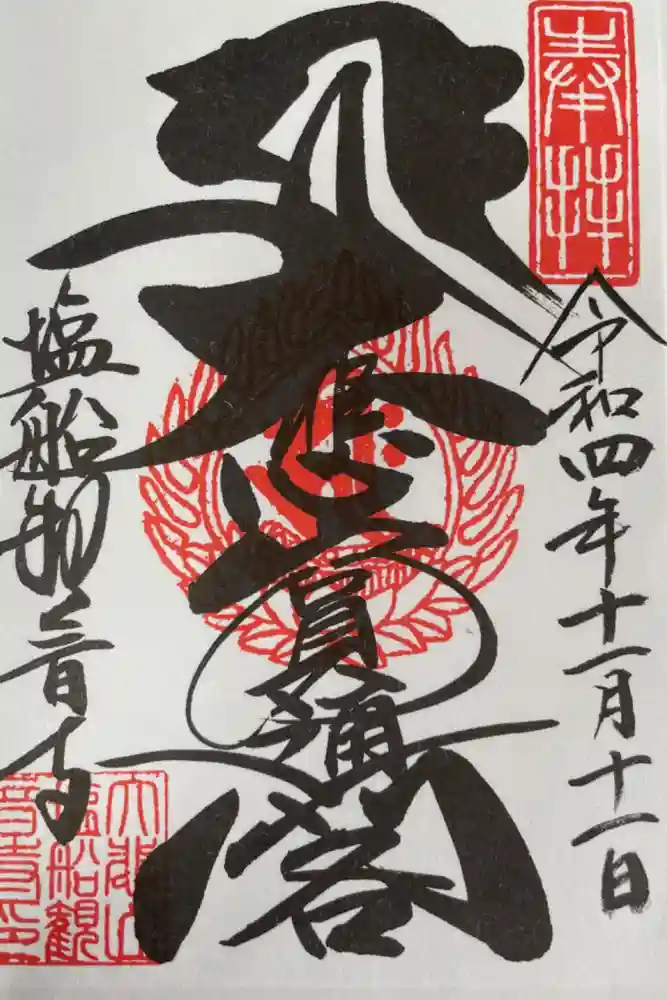 奉拝
令和四年十一月十一日
大悲閣
塩船観音寺
大悲山
塩船観
音寺印